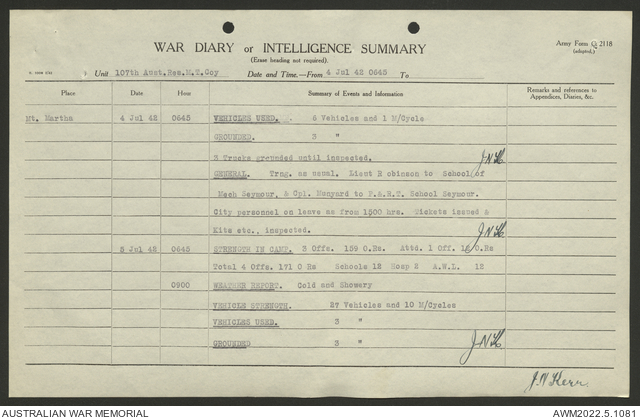 WAR DIARY or INTELLIGENCE SUMMARY
(Erase heading not required).
Army Form C 2118
(adapted.)
Unit 107th Aust.Res.M.T.Coy Date and Time.—From 4 Jul 42 0645 To
Place Date Hour Summary of Events and Information Remarks and references to
Appendices, Diaries, &c.
Mt. Martha 4 Jul 42 0645 VEHICLES USED. 6 Vehicles and 1 M/Cycle
GROUNDED. 3 "
3 Trucks grounded until inspected. JNK
GENERAL. Trng. as usual. Lieut Robinson to School of
Mech Seymour, & Cpl. Munyard to P.&R.T. School Seymour.
City personnel on leave as from 1500 hrs. Tickets issued &
Kits etc., inspected. JNK
5 Jul 42 0645 STRENGTH IN CAMP. 3 Offs. 159 O.Rs. Attd. 1 Off. 12 O.Rs
Total 4 Offs. 171 O Rs Schools 12 Hosp 2 A.W.L. 12
0900 WEATHER REPORT. Cold and Showery
VEHICLE STRENGTH. 27 Vehicles and 10 M/Cycles
VEHICLES USED. 3 "
GROUNDED 3 " JNK
J.N. Kerr.
AUSTRALIAN WAR MEMORIAL AWM2022.5.1081